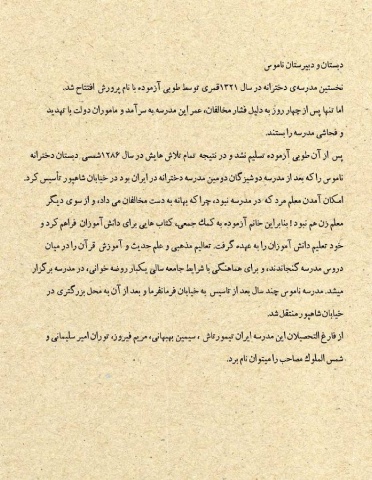 دبستان و دبیرستان ناموس
نخستین مدرسه‌ی دخترانه در سال ۱۳۲۱قمری توسط طوبی آزموده با نام پرورش افتتاح شد.
اما تنها پس از چهار روز به دلیل فشار مخالفان، عمر این مدرسه به سر آمد و ماموران دولت با تهدید و
فحاشی مدرسه را بستند.
پس از آن طوبی آزموده تسلیم نشد و در نتیجه تمام تلاش هایش در سال ۱۲۸۶شمسی دبستان دخترانه
ناموس را که بعد از مدرسه دوشیزگان دومین مدرسه دخترانه در ایران بود در خیابان شاهپور تأسیس کرد.
امکان آمدن معلم مرد که در مدرسه نبود، چرا که بهانه به دست مخالفان می داد، و از سوی دیگر
معلم زن هم نبود! بنابراین خانم آزموده به کمک جمعی، کتاب هایی برای دانش آموزان فراهم کرد و
خود تعلیم دانش آموزان را به عهده گرفت. تعالیم مذهبی و علم حدیث و آموزش قرآن را در میان
دروس مدرسه گنجاندند، و برای هماهنگی با شرایط جامعه سالی یکبار روضه خوانی، در مدرسه برگزار
میشد. مدرسه ناموس چند سال بعد از تاسیس به خیابان فرمانفرما و بعد از آن به محل بزرگتری در
خیابان شاهپور منتقل شد.
از فارغ التحصیلان این مدرسه ایران تیمورتاش ، سیمین بهبهانی، مریم فیروز، توران امیر سلیمانی و
شمس الملوک مصاحب را میتوان نام برد.